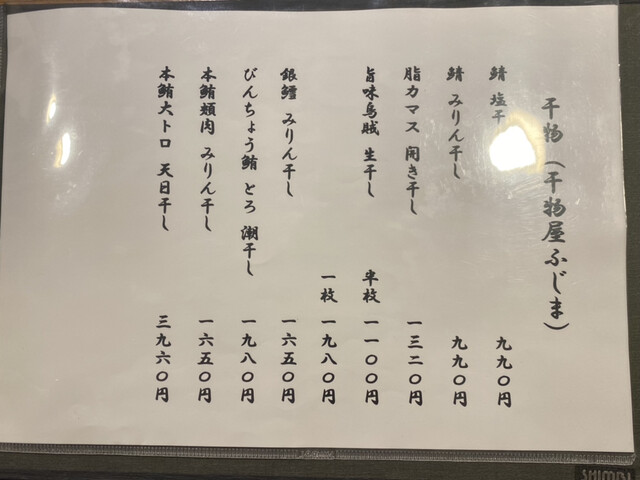 干物（干物屋ふじま）
鯖 塩干 九九〇円
鯖 みりん干し 九九〇円
脂カマス 開き干し 一三二〇円
旨味烏賊 生干し 半枚 一一〇〇円
一枚 一九八〇円
銀鱈 みりん干し 一六五〇円
びんちょう鮪 とろ 潮干し 一九八〇円
本鮪頬肉 みりん干し 一六五〇円
本鮪大トロ 天日干し 三九六〇円